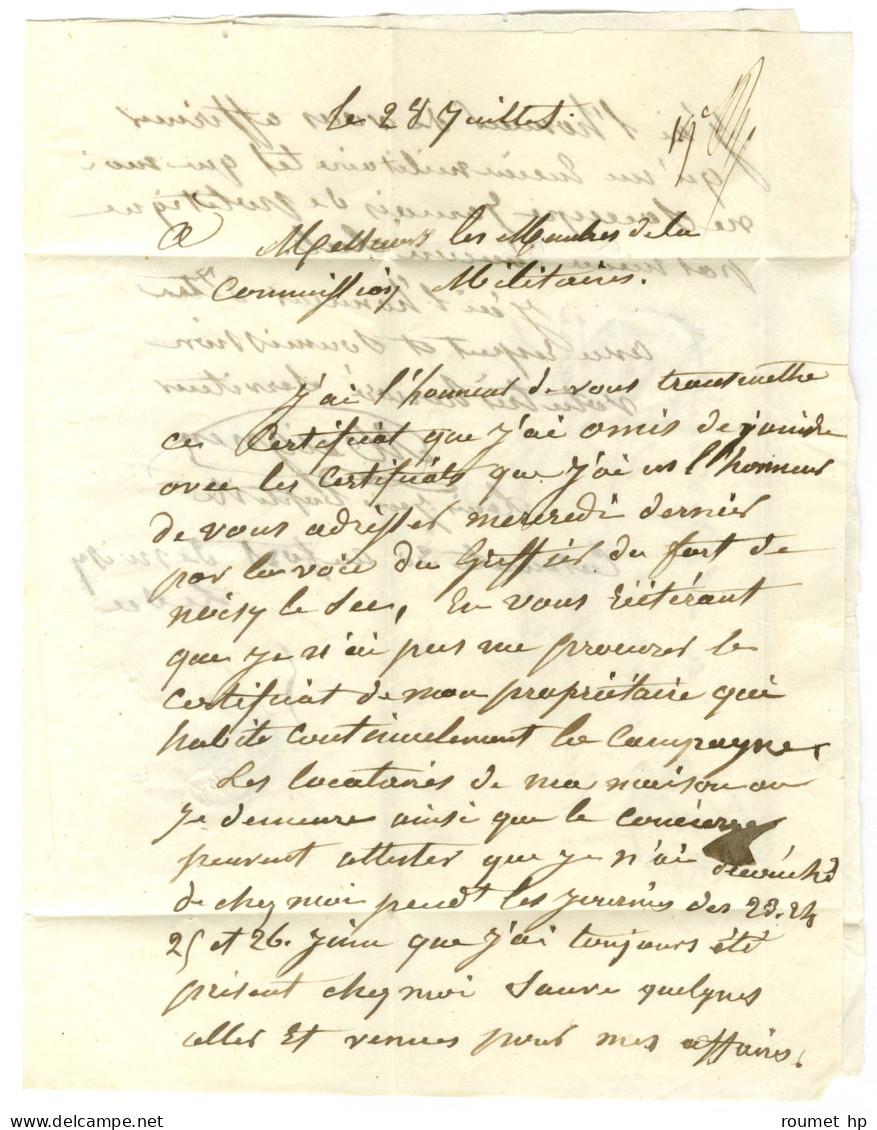 le 28 Juillet.
19e
A Messieurs les Membres de la
Commission Militaires.
J'ai l'honneur de vous transmettre
ce Certificat que j'ai omis de joindre
avec les Certificats que j'ai eu l'honneur
de vous adresser mercredi dernier
par la voie du Greffier du fort de
noisy le Sec, En vous réitérant
que je n'ai pas me procurer le
certificat de mon propriétaire qui
habite continuelement la Campagne,
Les locataires de ma maison ou
je demeure ainsi que le concierge
peuvent attester que je n'ai découché
de chez moi pendt les journés des 23. 24
25 et 26. Juin que j'ai toujours été
présent chez moi Sauve quelques
aller Et venues pour mes affaires.
www.delcampe.net
roumet hp